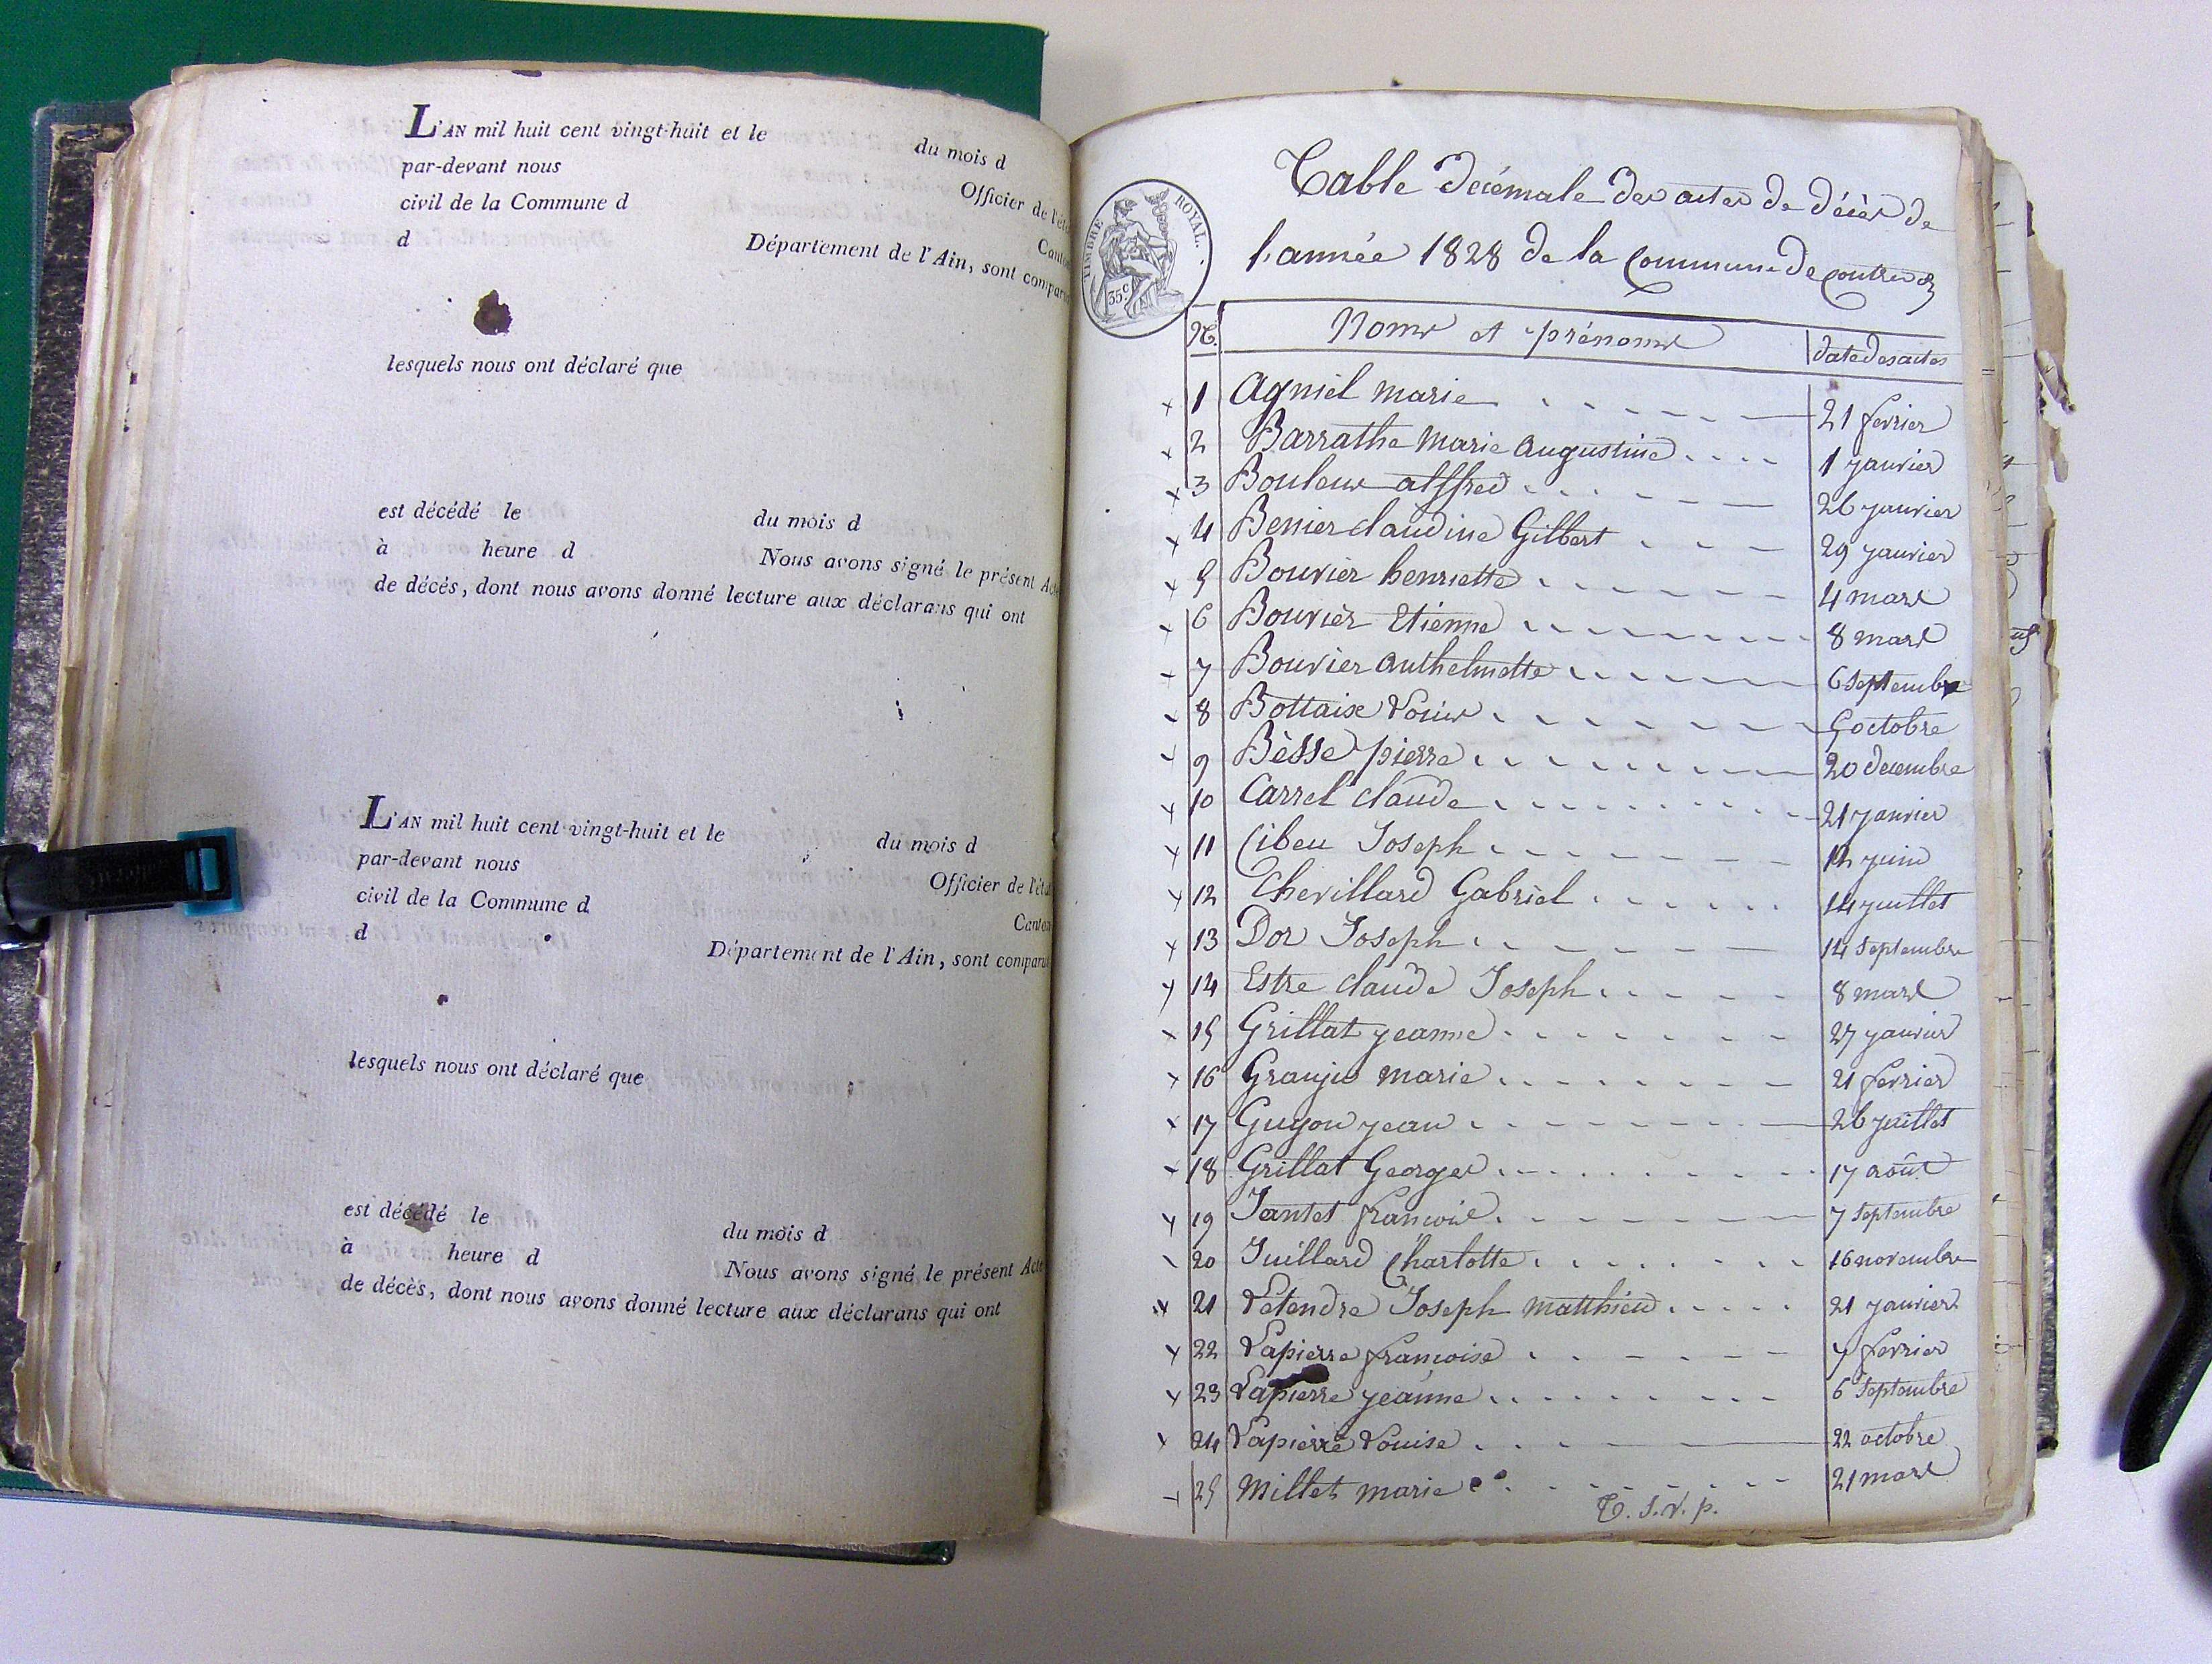 L'AN mil huit cent vingt-huit et le du mois d
par-devant nous Officier de l'éta
civil de la Commune d Canton
d Département de l'Ain, sont comparus
lesquels nous ont déclaré que
est décédé le du mois d
à heure d Nous avons signé le présent Acte
de décès, dont nous avons donné lecture aux déclarans qui ont
L'AN mil huit cent vingt-huit et le du mois d
par-devant nous Officier de l'éta
civil de la Commune d Canton
d Département de l'Ain, sont comparus
lesquels nous ont déclaré que
est décédé le du mois d
à heure d Nous avons signé le présent Acte
de décès, dont nous avons donné lecture aux déclarans qui ont
TIMBRE ROYAL.
35c
Table décémale des actes de décès de
l'année 1828 de la Commune de
N° Noms et prénoms date des actes
1 Agniel marie 21 fevrier
2 Barrathe Marie Augustine 1 janvier
3 Bouleur alffred 26 janvier
4 Benier claudine Gilbert 29 janvier
5 Bouvier henriette 4 mars
6 Bouvier Etienne 8 mars
7 Bouvier Anthelmette 6 septembre
8 Bottaix Louis 5 octobre
9 Bèsse pierre 20 decembre
10 Carrel claude 21 janvier
11 Cibeu Joseph juin
12 Chevillard Gabriel 14 juillet
13 Dor Joseph 14 septembre
14 Estre claude Joseph 8 mars
15 Grillat jeanne 27 janvier
16 Granju marie 21 fevrier
17 Guyon jean 26 juillet
18 Grillat Georges 17 août
19 Jantet francois 7 septembre
20 Juillard Charlotte 16 novembre
21 Létendre Joseph matthieu 21 janvier
22 Lapierre francoise 7 fevrier
23 Lapierre jeanne 6 septembre
24 Lapierre Louise 22 octobre
25 Millet marie 21 mars
T. S. V. p.